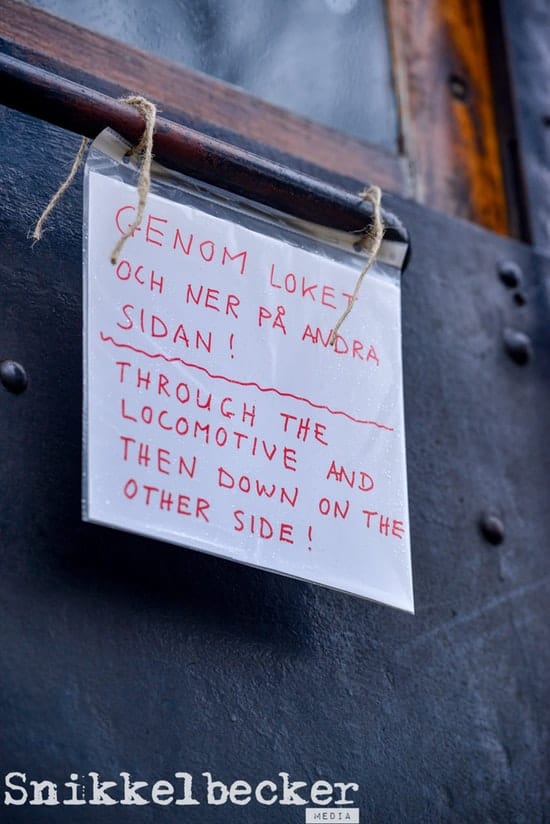 GENOM LOKET
OCH NER PÅ ANDRA
SIDAN!
THROUGH THE
LOCOMOTIVE AND
THEN DOWN ON THE
OTHER SIDE!
Snikkelbecker
MEDIA